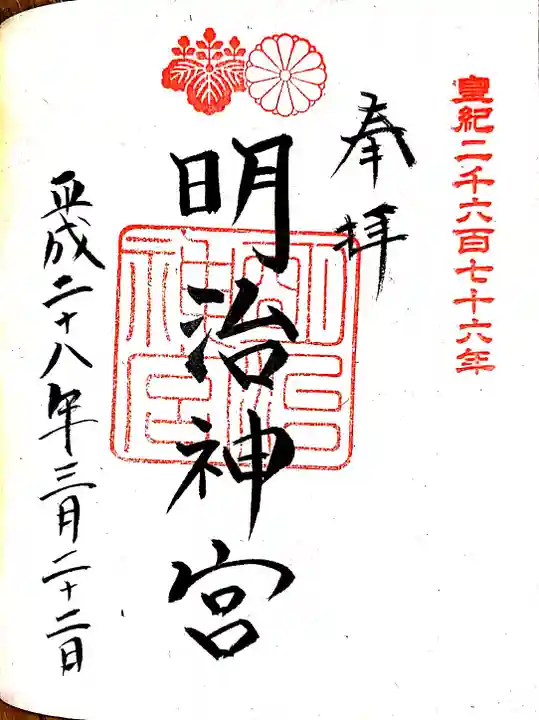 皇紀二千六百七十六年
奉拝
明治神宮
平成二十八年三月二十二日